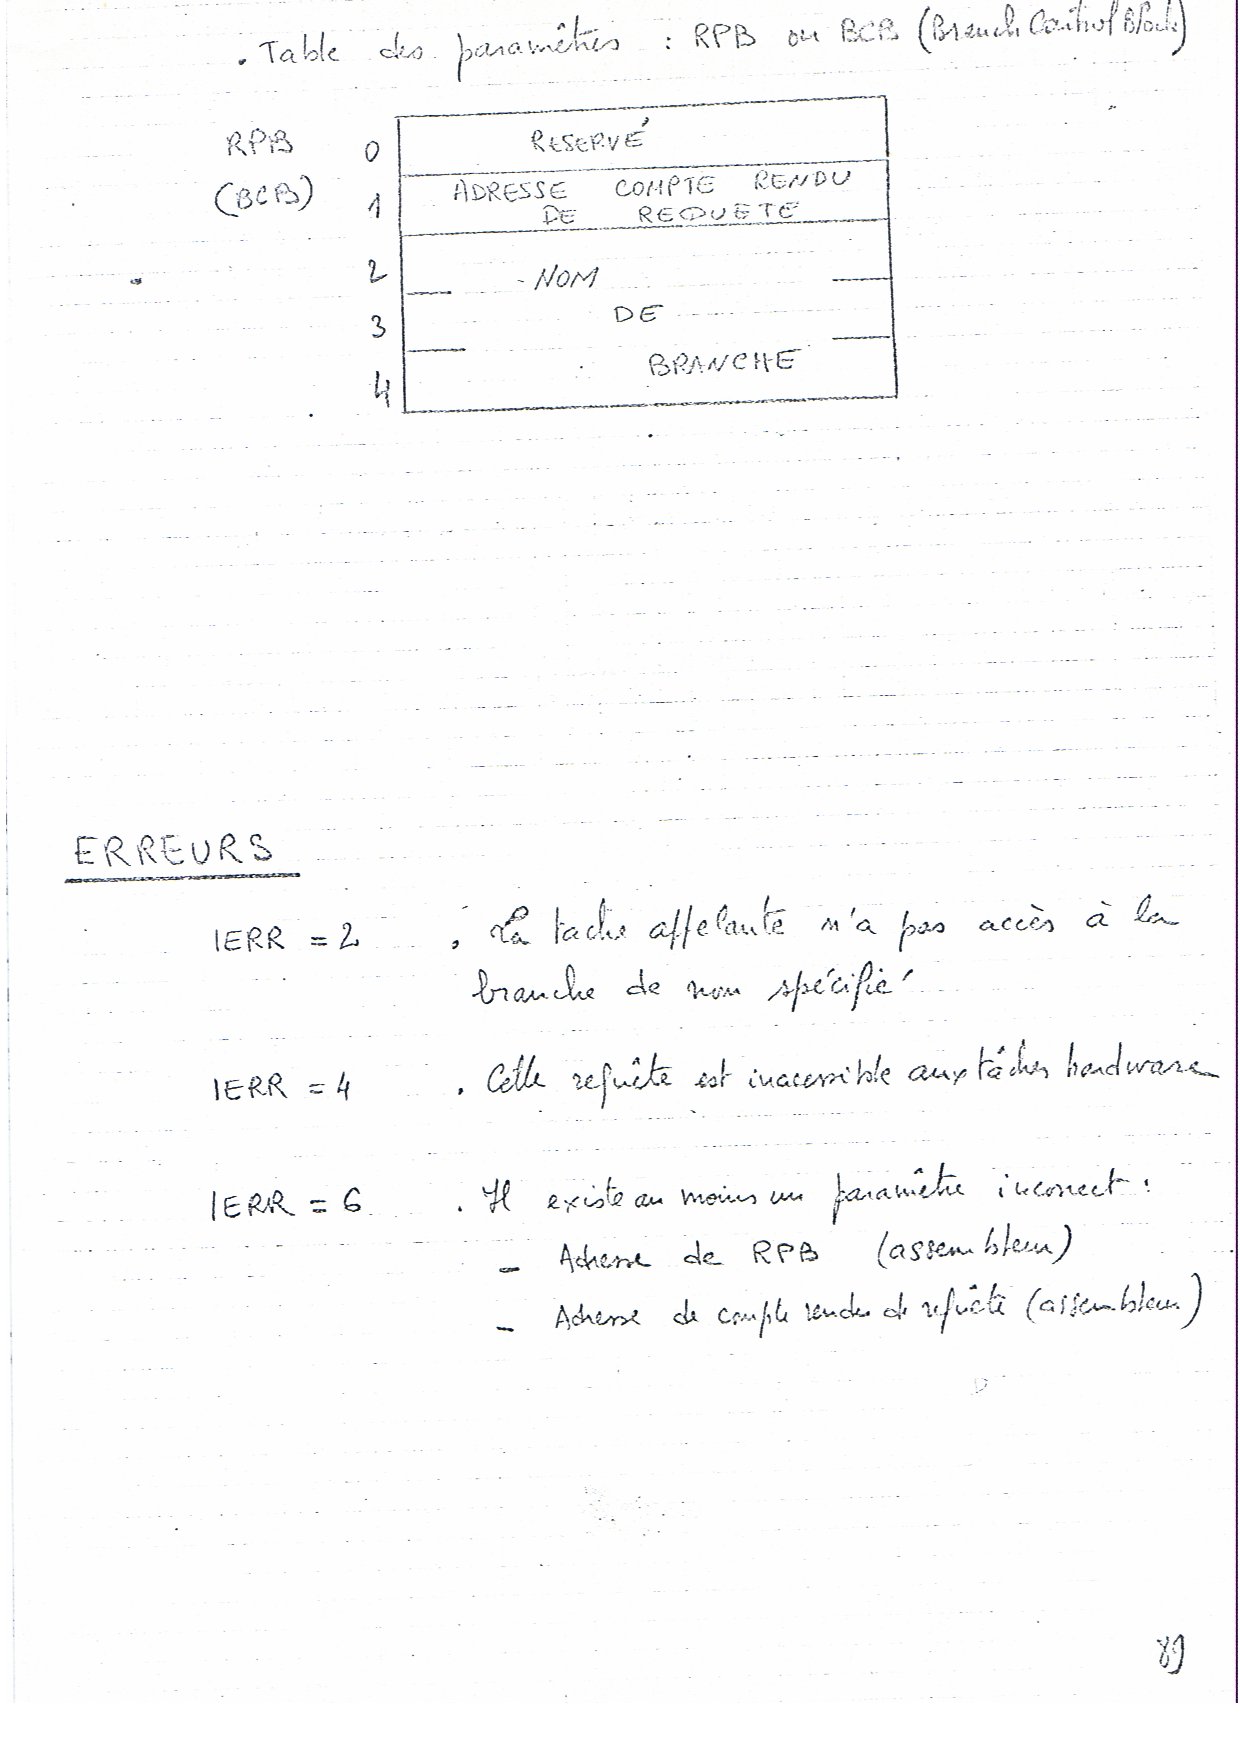 . Table des paramètres : RPB ou BCB (Branch Control Block)
RPB 0 RESERVÉ
(BCB) 1 ADRESSE COMPTE RENDU
DE REQUETE
2 - NOM
3 DE
4 BRANCHE
ERREURS
IERR = 2 . La tache appelante n'a pas accès à la
branche de nom spécifié
IERR = 4 . Cette requête est inacessible aux tâches hardware
IERR = 6 . Il existe au moins un paramètre incorrect :
- Adresse de RPB (assembleur)
- Adresse de compte rendu de requête (assembleur)
89